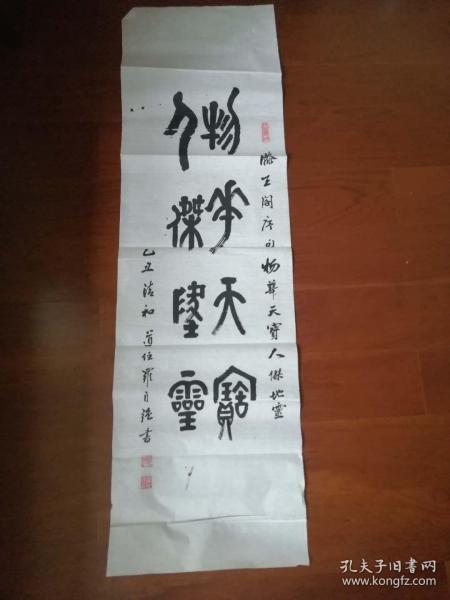 滕王阁序句物華天寶人傑地靈
物華天寶
人傑地靈
乙丑清和道任羅月強書
孔夫子旧书网
www.kongfz.com